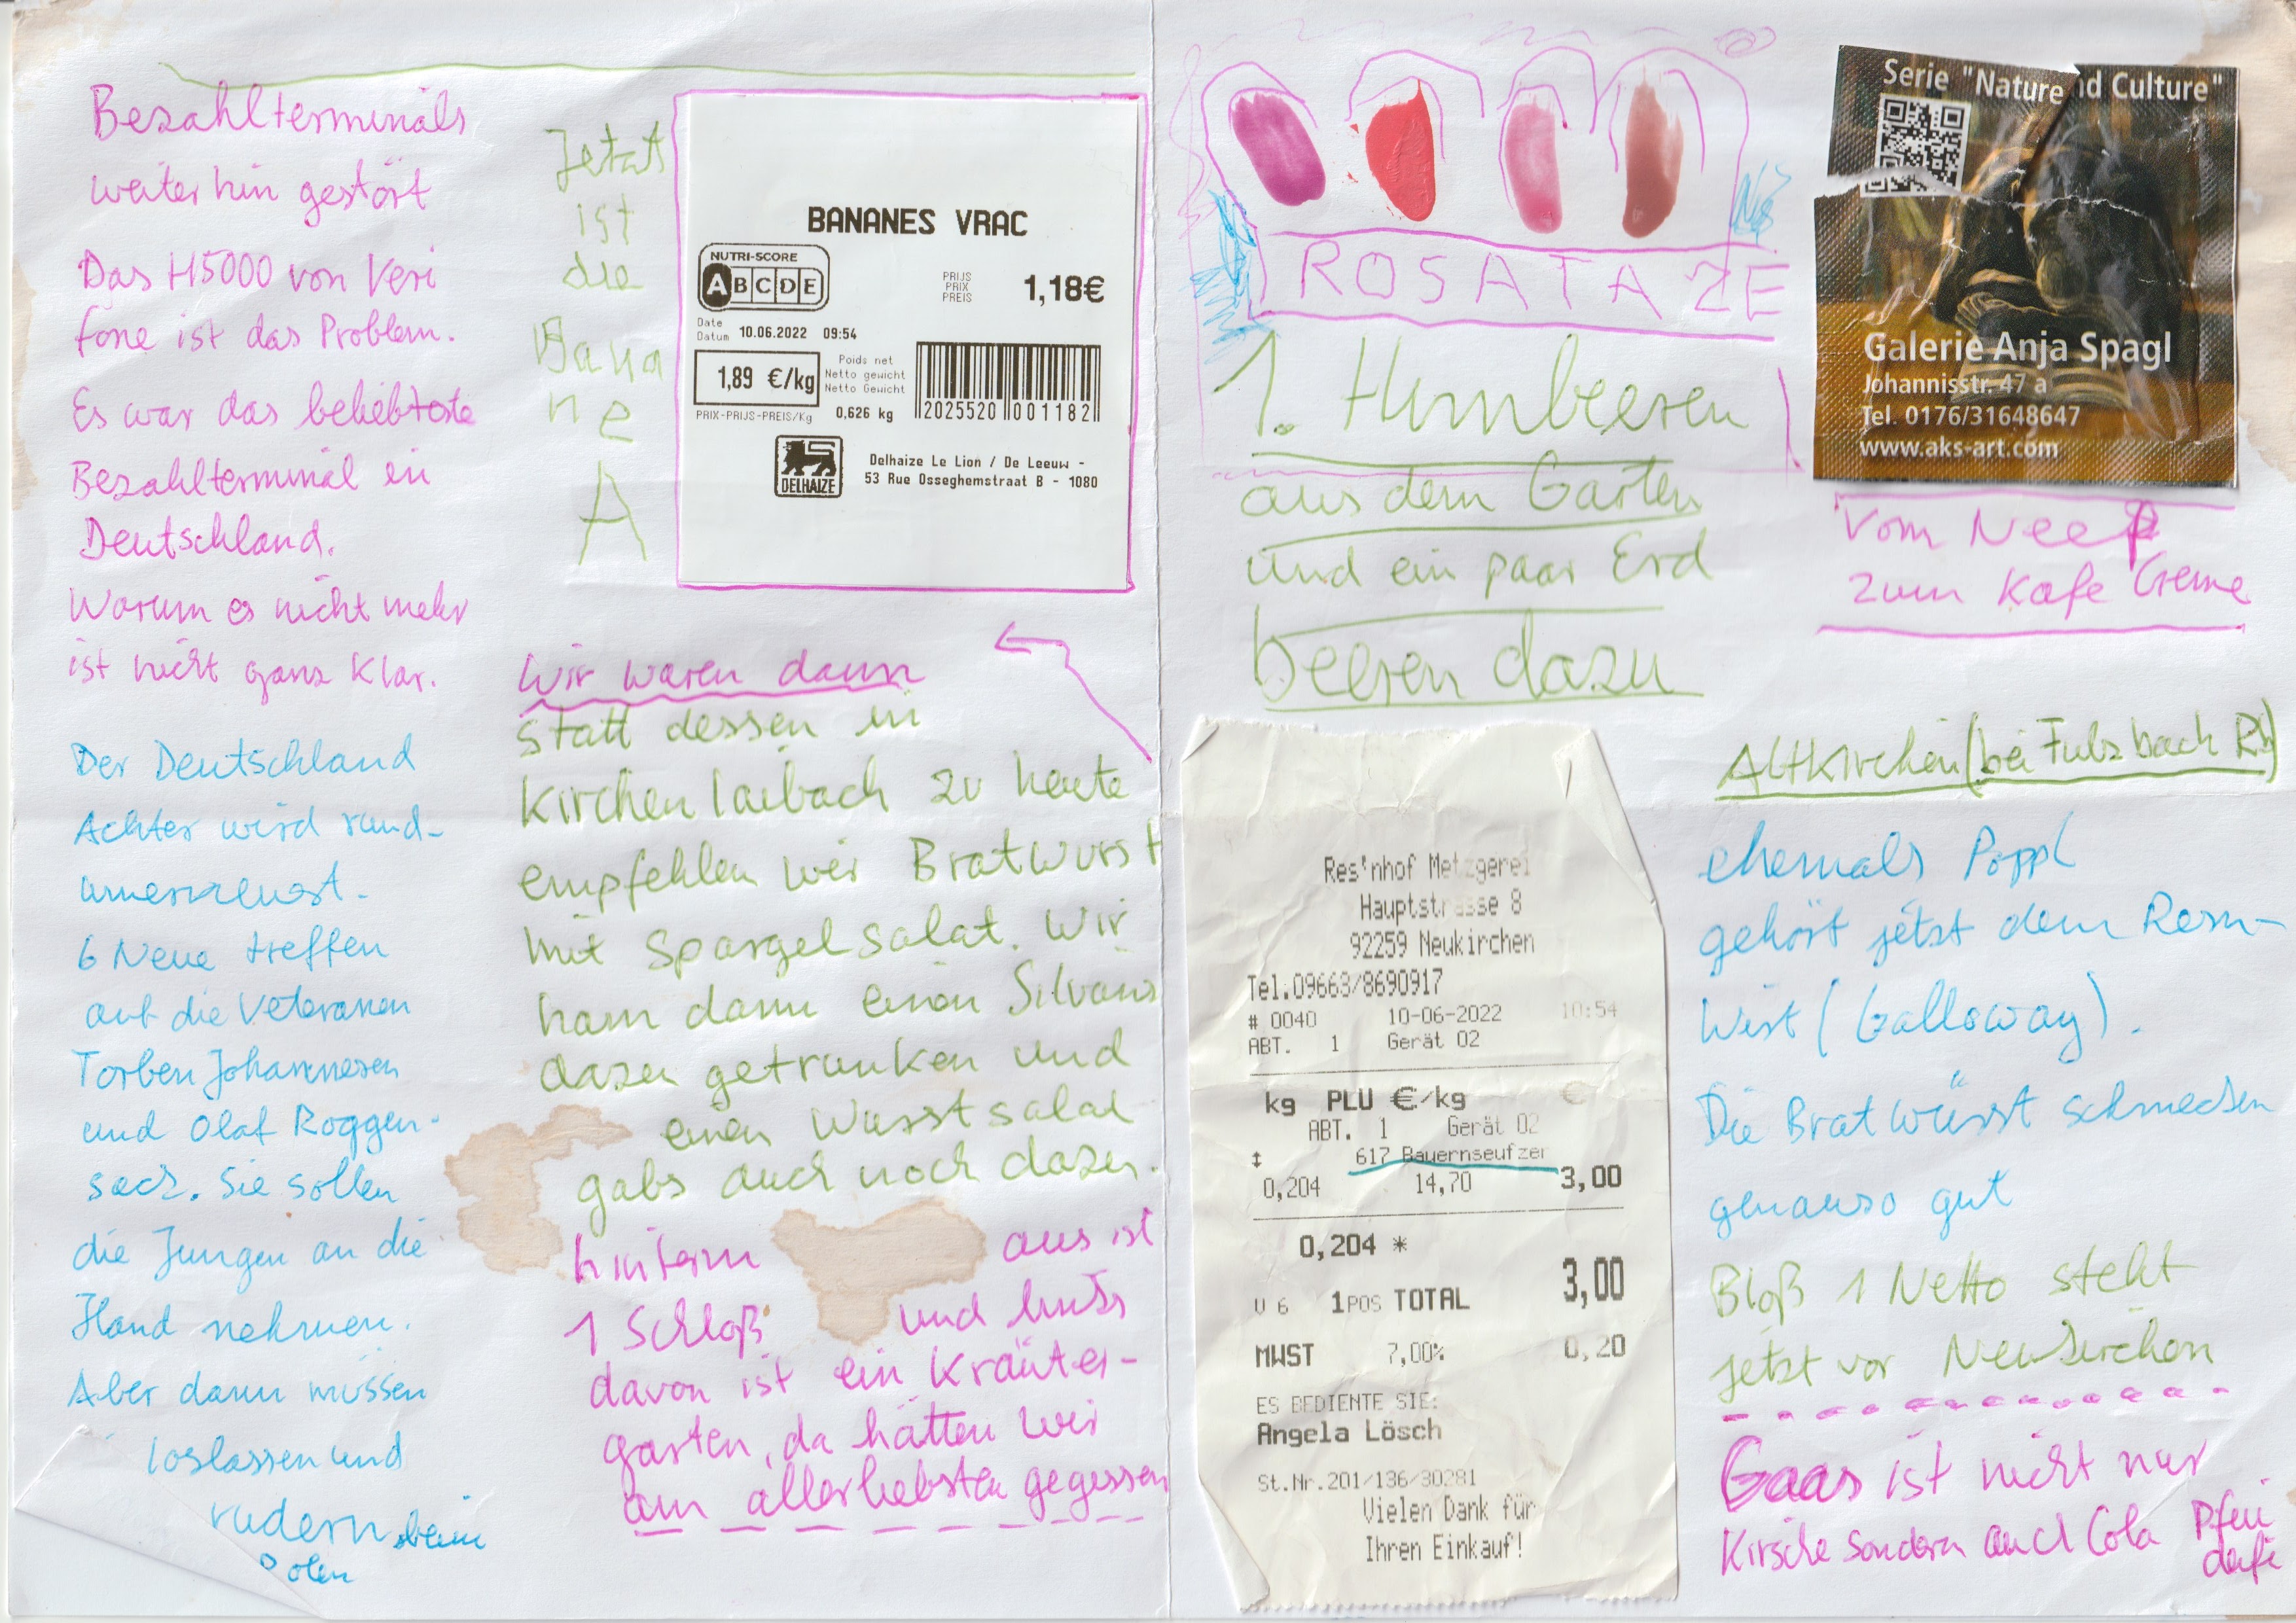 Bezahlterminals
weiterhin gestört
Das H5000 von Veri
fone ist das Problem.
Es war das beliebteste
Bezahlterminal in
Deutschland.
Warum es nicht mehr
ist nicht ganz klar.
Der Deutschland
Achter wird rund-
erneuert.
6 Neue treffen
auf die Veteranen
Torben Johannesen
und Olaf Roggen-
sack. Sie sollen
die Jungen an die
Hand nehmen.
Aber dann müssen
loslassen und
rudern beim
Polen
Jetzt
ist
die
Bana
ne
A
BANANES VRAC
NUTRI-SCORE
A B C D E
PRIJS
PRIX
PREIS
1,18€
Date
Datum 10.06.2022 09:54
1,89 €/kg
Poids net
Netto gewicht
Netto Gewicht
PRIX-PRIJS-PREIS/Kg 0,626 kg
2025520 001182
DELHAIZE
Delhaize Le Lion / De Leeuw -
53 Rue Osseghemstraat B - 1080
Wir waren dann
statt dessen in
Kirchenlaibach zu heute
empfehlen wir Bratwurst
mit Spargelsalat. Wir
ham dann einen Silvans
dazu getrunken und
einen Wurstsalat
gabs auch noch dazu.
hinterm aus ist
1 Schloß und links
davon ist ein Kräuter-
garten, da hätten wir
am allerliebsten gegessen
ROSATAZE
1. Himbeeren
aus dem Garten
und ein paar Erd
beeren dazu
Serie "Nature nd Culture"
Galerie Anja Spagl
Johannisstr. 47 a
Tel. 0176/31648647
www.aks-art.com
Vom Neep
zum Kafe Creme
Res'nhof Metzgerei
Hauptstrasse 8
92259 Neukirchen
Tel.09663/8690917
# 0040 10-06-2022 10:54
ABT. 1 Gerät 02
kg PLU €/kg €
ABT. 1 Gerät 02
617 Bauernseufzer
0,204 14,70 3,00
0,204 *
V 6 1POS TOTAL 3,00
MWST 7,00% 0,20
ES BEDIENTE SIE:
Angela Lösch
St.Nr.201/136/30281
Vielen Dank für
Ihren Einkauf!
Altkirchen (bei Sulzbach Rb)
ehemals Poppl
gehört jetzt dem Resn-
Wirt (Galloway).
Die Bratwürst schmecken
genauso gut
Bloß 1 Netto steht
jetzt vor Neukirchen
Gaas ist nicht nur
Kirsche sondern auch Cola